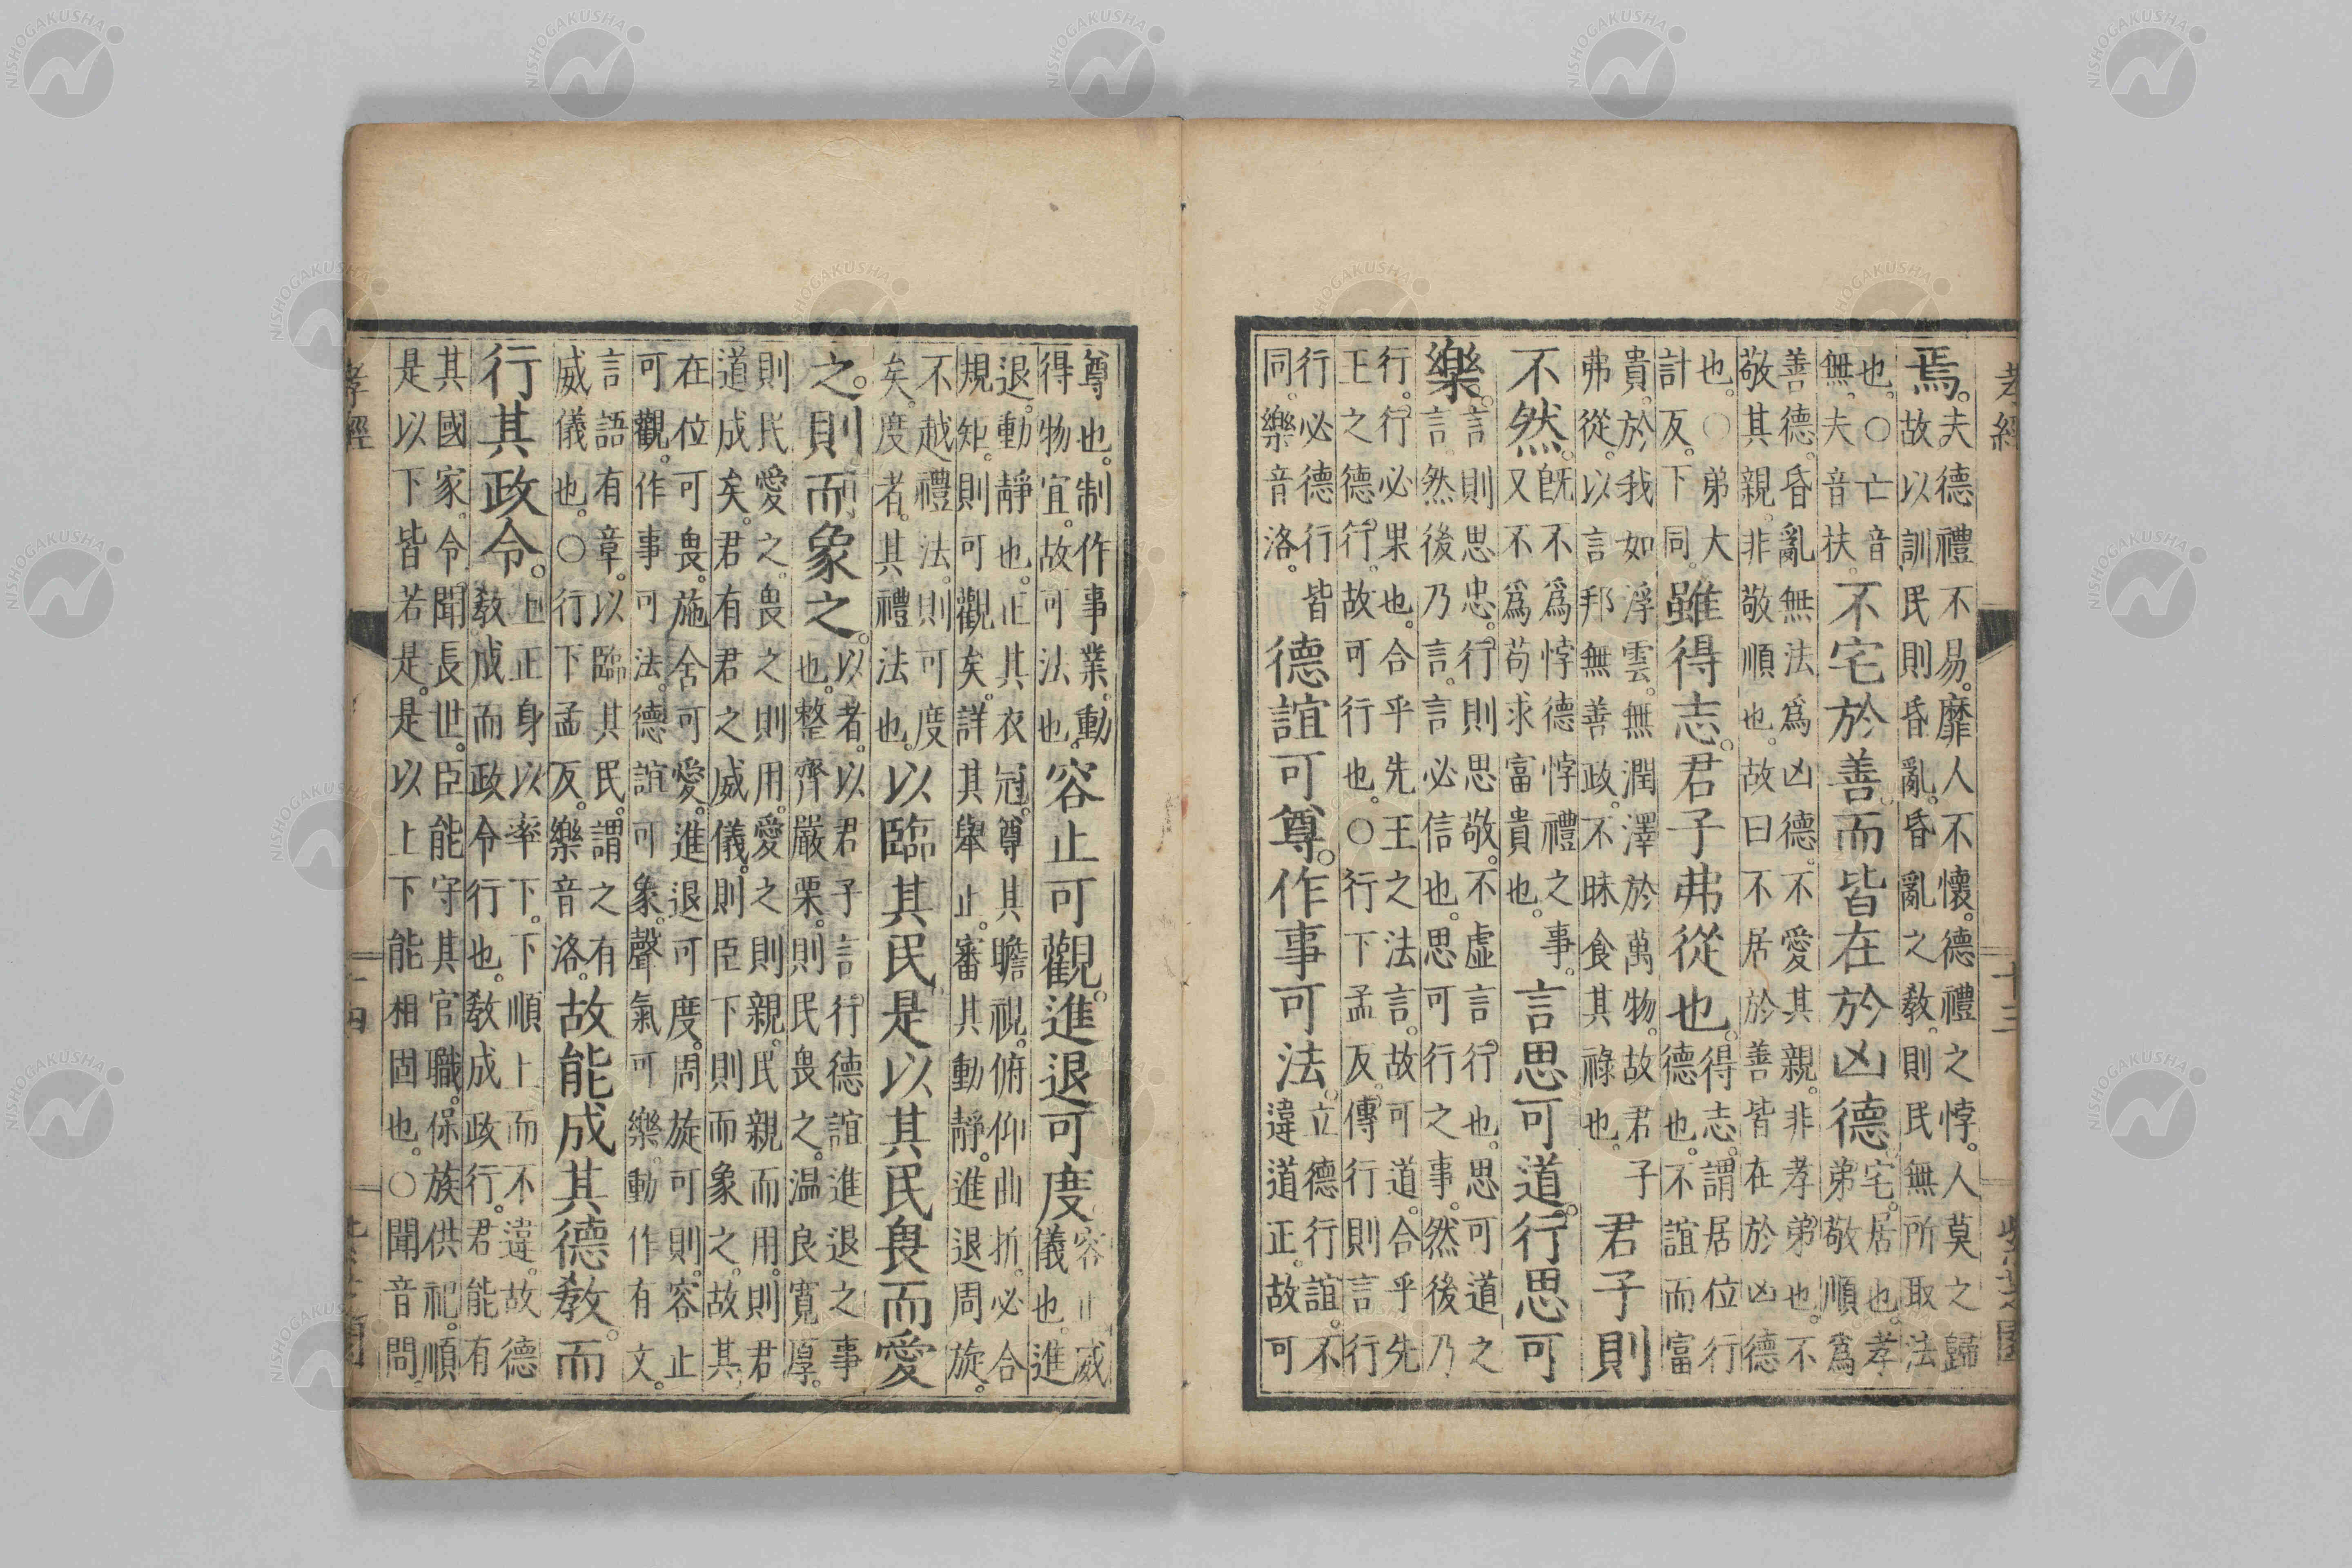 孝經
十三
焉。
夫德禮不易。靡人不懷。德禮之悖。人莫之歸
故以訓民則昏亂。昏亂之教。則民無所取法
也。○亡音
無。夫音扶。
不宅於善而皆在於凶德。
宅。居也。孝
弟敬順爲
善德。昏亂無法爲凶德。不愛其親。非孝弟也。不
敬其親。非敬順也。故曰不居於善皆在於凶德
也。○弟大
計反。下同。
雖得志。君子弗從也。
得志。謂居位行
德也。不誼而富
貴。於我如浮雲。無潤澤於萬物。故君子
弗從。以言邦無善政。不昧食其祿也。
君子則
不然。
旣不爲悖德悖禮之事。
又不爲苟求富貴也。
言思可道。行思可
樂。
言則思忠。行則思敬。不虛言行也。思可道之
言然後乃言。言必信也。思可行之事。然後乃
行。行必果也。合乎先王之法言。故可道。合乎先
王之德行。故可行也。○行下孟反。傳行則言行
行必德行皆
同。樂音洛。
德誼可尊。作事可法。
立德行誼。不
違道正。故可
尊也。制作事業。動
得物宜。故可法也。
容止可觀。進退可度
容止威
儀也。進
退。動靜也。正其衣冠。尊其瞻視。俯仰曲折。必合
規矩。則可觀矣。詳其舉止。審其動靜。進退周旋。
不越禮法。則可度
矣。度者。其禮法也。
以臨其民。是以其民畏而愛
之。則而象之。
以者。以君子言行德誼進退之事
也。整齊嚴栗。則民畏之。温良寬厚。
則民愛之。畏之則用。愛之則親。民親而用。則君
道成矣。君有君之威儀。則臣下則而象之。故其
在位可畏。施舍可愛。進退可度。周旋可則。容止
可觀。作事可法。德誼可象。聲氣可樂。動作有文。
言語有章。以臨其民。謂之有
威儀也。○行下孟反。樂音洛。
故能成其德教。而
行其政令。
上正身以率下。下順上而不違。故德
教成而政令行也。教成政行。君能有
其國家。令聞長世。臣能守其官職。保族供祀。順
是以下皆若是。是以上下能相固也。○聞音問
孝經
NISHOGAKUSHA